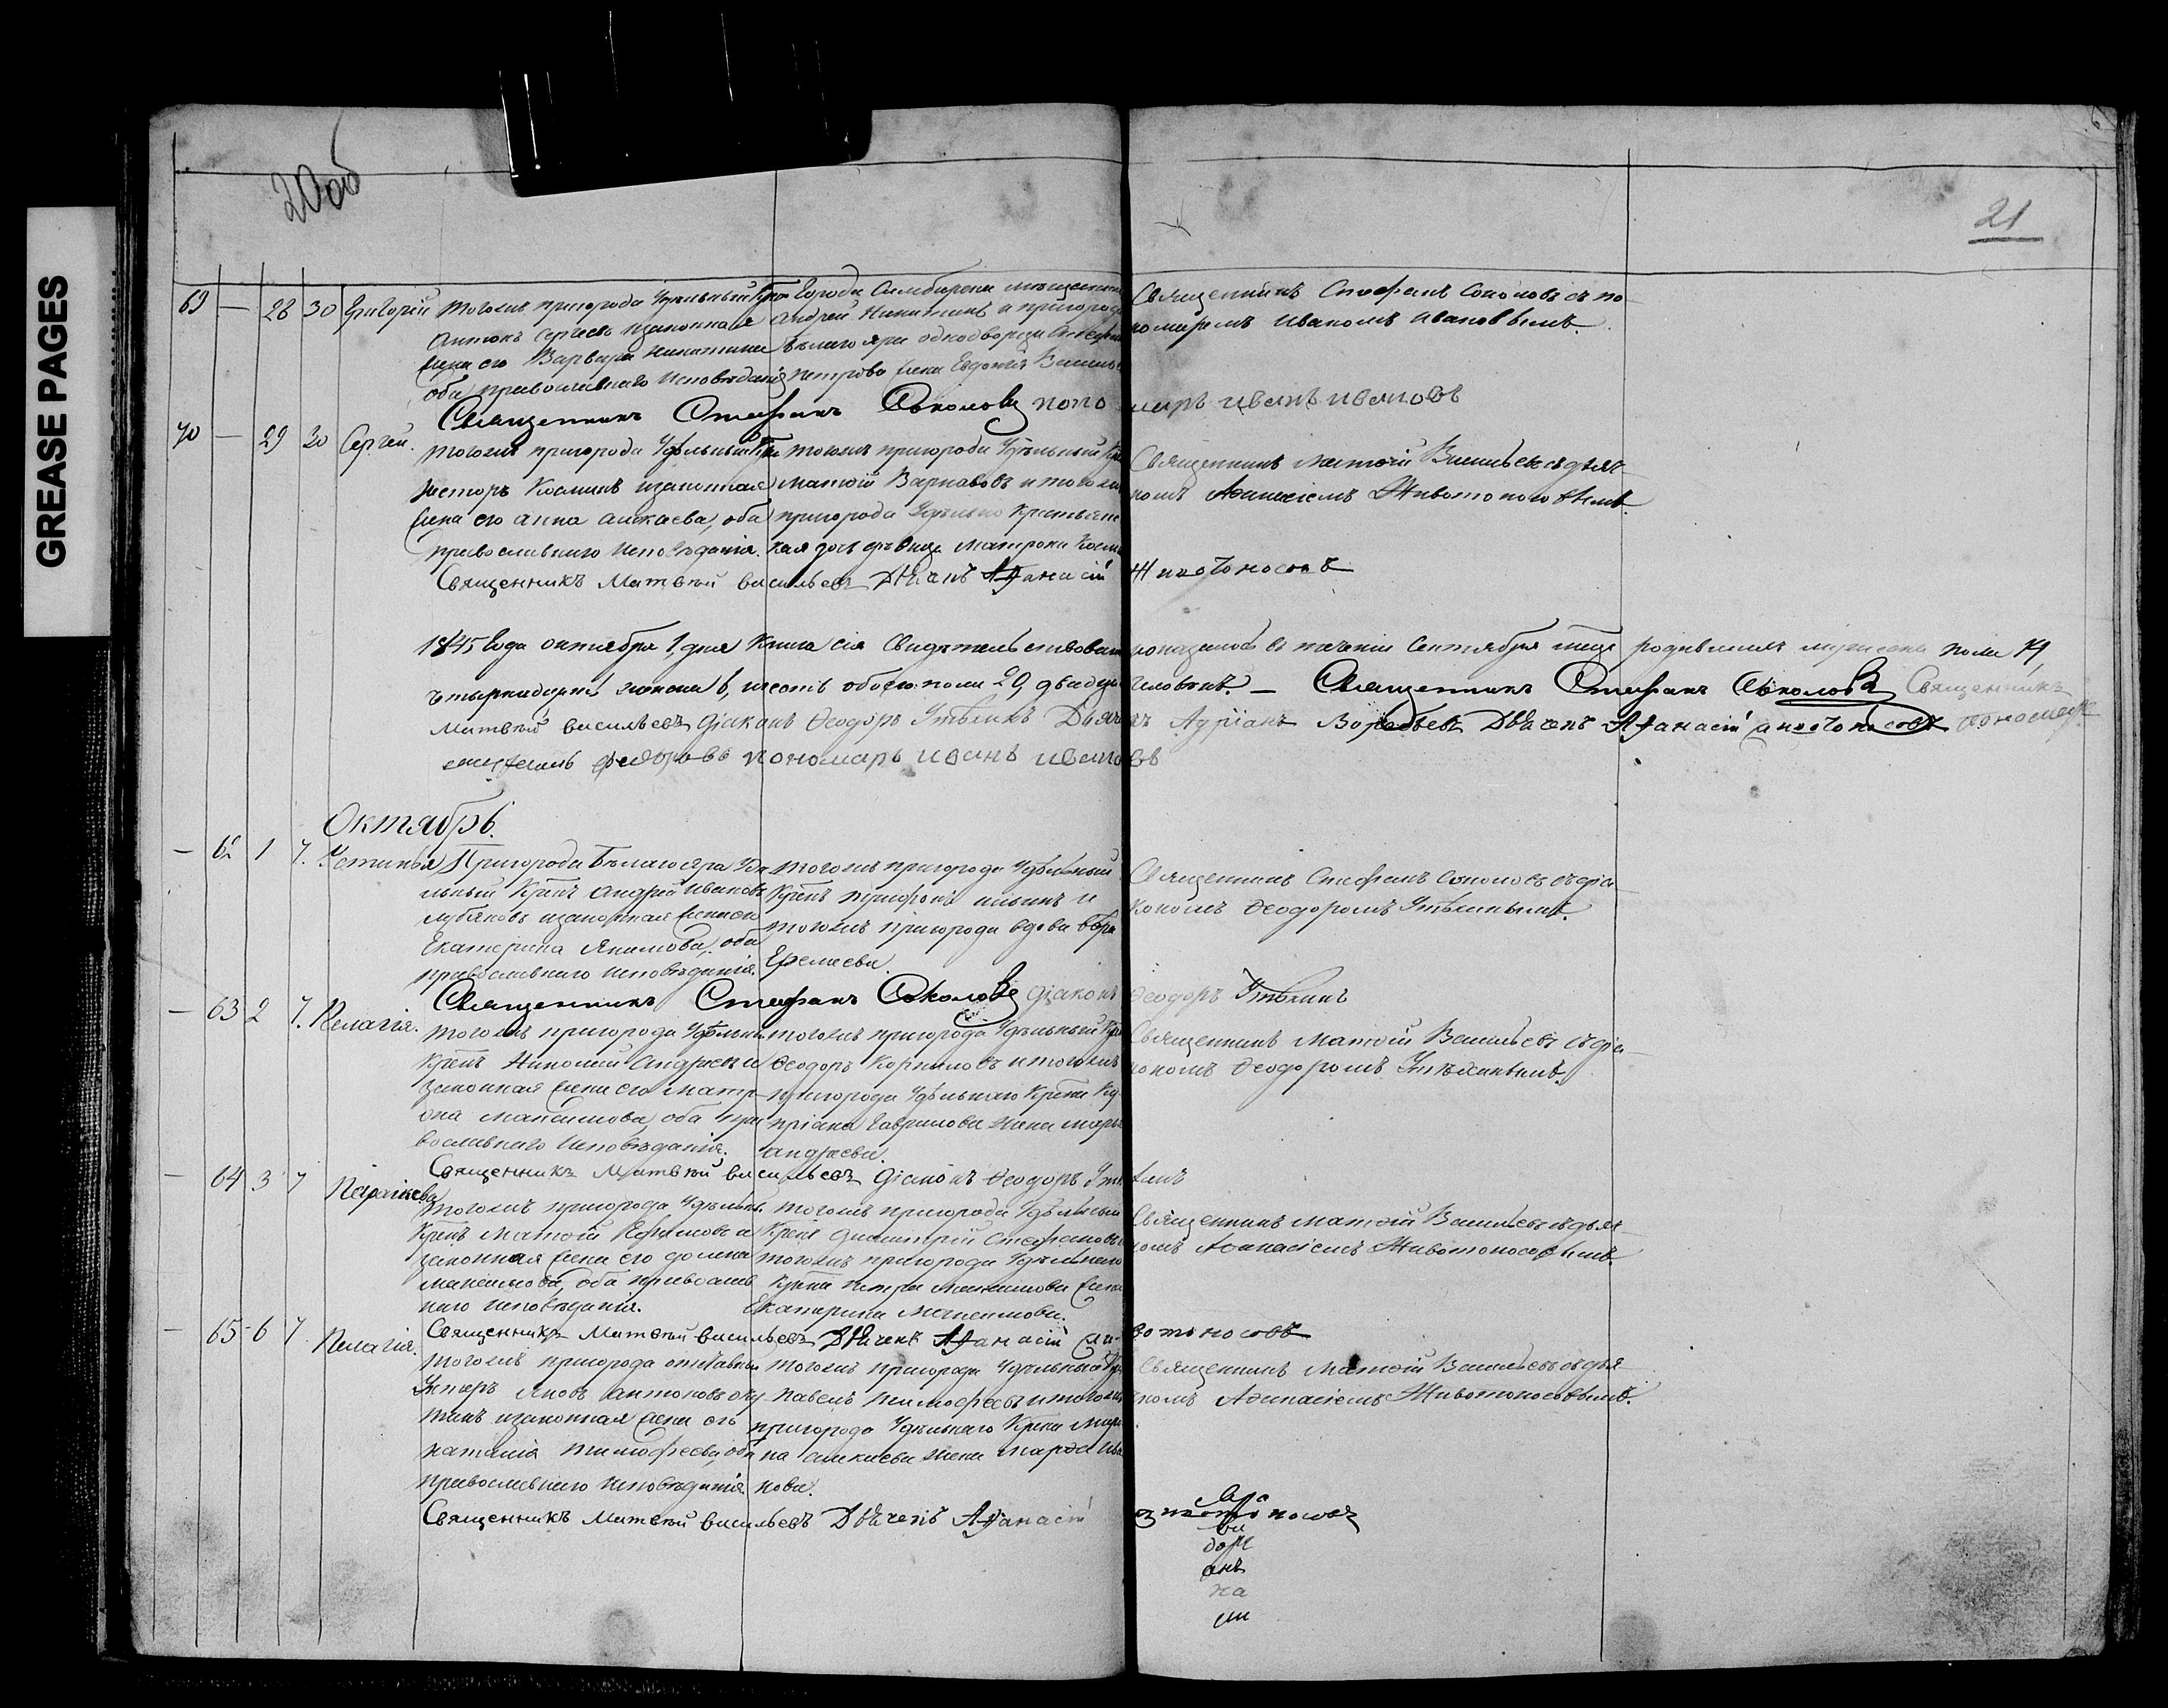 GREASE PAGES
20 об
21
69 — 28 30 Григорій
Тогожъ пригорода Удѣльный Крнъ
Антонъ Сергѣевъ и законная
жена его Варвара Никитина
оба православнаго исповѣданія
Города Симбирска мѣщанинъ
Андрей Никитинъ и пригорода
Бѣлаго яра однодворца
Петрова жена Евдокія Василь
Священникъ Стефанъ Соколовъ съ по
номаремъ Иваномъ Ивановымъ.
Священникъ Стефанъ Соколовъ пономарь Иванъ Ивановъ
70 — 29 30 Сергей.
Тогожъ пригорода Удѣльный Крнъ
Несторъ Косминъ и законная
жена его Анна Алкаева, оба
православнаго исповѣданія.
Тогожъ пригорода Удѣльный Кр
Матѳій Варнавовъ и тогожъ
пригорода Удѣльно Крестьянс
кая дочь дѣвица Матрона Косм
Священникъ Матѳій Васильевъ съ дьяч
комъ Аѳанасіемъ Животоносовымъ.
Священникъ Матвѣй Васильевъ Дьячекъ Афанасій Животоносовъ
1845 Года октября 1, дня Книга сія Свидѣтельствована
показалось въ теченіи Сентября мца родившихъ мужеска пола 14,
четырнадцать женска 6, шесть обоего пола 20, двадца
человѣкъ. — Священникъ Стефанъ Соколовъ Священникъ
Матвѣй Васильевъ Діаконъ Ѳеодоръ Утѣхинъ Дьячекъ Адріанъ Воробьевъ Дьячекъ Афанасій Животоносовъ пономарь
Федоровъ пономарь Иванъ Ивановъ
Октябрь.
— 62 1 7. Устинья
Пригорода Бѣлаго яра Удѣ
льный Крнъ Андрей Ивановъ
и законная жена его
Екатерина Якимова, оба
православнаго исповѣданія.
Тогожъ пригорода Удѣльный
Крнъ Трифонъ Ильинъ и
тогожъ пригорода вдова Вѣра
Еремеева.
Священникъ Стефанъ Соколовъ съ діа
кономъ Ѳеодоромъ Утѣхинымъ.
Священникъ Стефанъ Соколовъ Діаконъ Ѳеодоръ Утѣхинъ
— 63 2 7. Пелагія.
Тогожъ пригорода Удѣльный
Крнъ Николай Андреевъ и
законная жена его Матр
она Максимова, оба пра
вославнаго исповѣданія.
Тогожъ пригорода Удѣльный Крн
Ѳеодоръ Корниловъ и тогожъ
пригорода Удѣльнаго Крнна Ку
пріана Гаврилова жена Марья
Андреева.
Священникъ Матѳій Васильевъ съ діа
кономъ Ѳеодоромъ Утѣхинымъ.
Священникъ Матвѣй Васильевъ Діаконъ Ѳеодоръ Утѣхинъ
— 64 3 7 Параскева
Тогожъ пригорода Удѣльн.
Крнъ Матѳій Ефимовъ и
законная жена его Домна
Максимова, оба православ
наго исповѣданія.
Тогожъ пригорода Удѣльный
Крнъ Димитрій Стефановъ
тогожъ пригорода Удѣльнаго
Крнна Петра Максимова жена
Екатерина Максимова.
Священникъ Матѳій Васильевъ съ дьяч
комъ Аѳанасіемъ Животоносовымъ.
Священникъ Матвѣй Васильевъ Дьячекъ Афанасій Животоносовъ
— 65 6 7 Пелагія.
Тогожъ пригорода отставный
Унтеръ Яковъ Антоновъ
и законная жена его
Наталія Тимофеева, оба
православнаго исповѣданія
Тогожъ пригорода Удѣльный Кр
Павелъ Тимофеевъ и тогожъ
пригорода Удѣльнаго Крнна
жена Марфа Ива
нова.
Священникъ Матѳій Васильевъ съ дья
чкомъ Аѳанасіемъ Животоносовымъ.
Священникъ Матвѣй Васильевъ Дьячекъ Афанасій Животоносовъ
ви
анъ
на